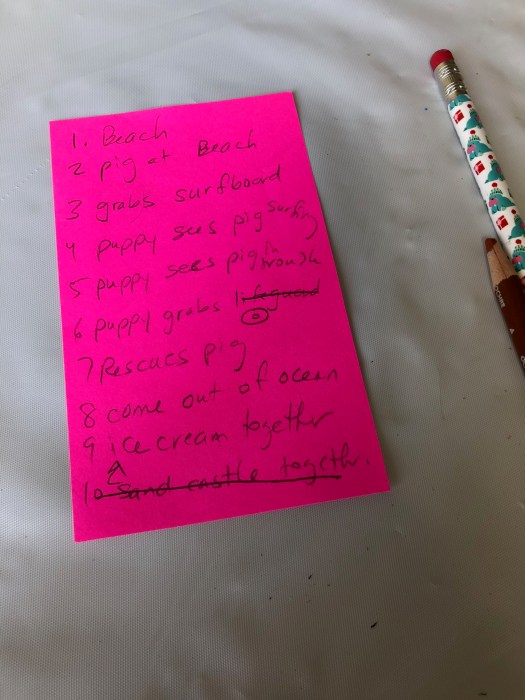 1. Beach
2 pig at Beach
3 grabs surfboard
4 puppy sees pig surfing
5 puppy sees pig in trouble
6 puppy grabs lifeguard
7 Rescues pig
8 come out of ocean
9 ice cream together
10 sand castle together.